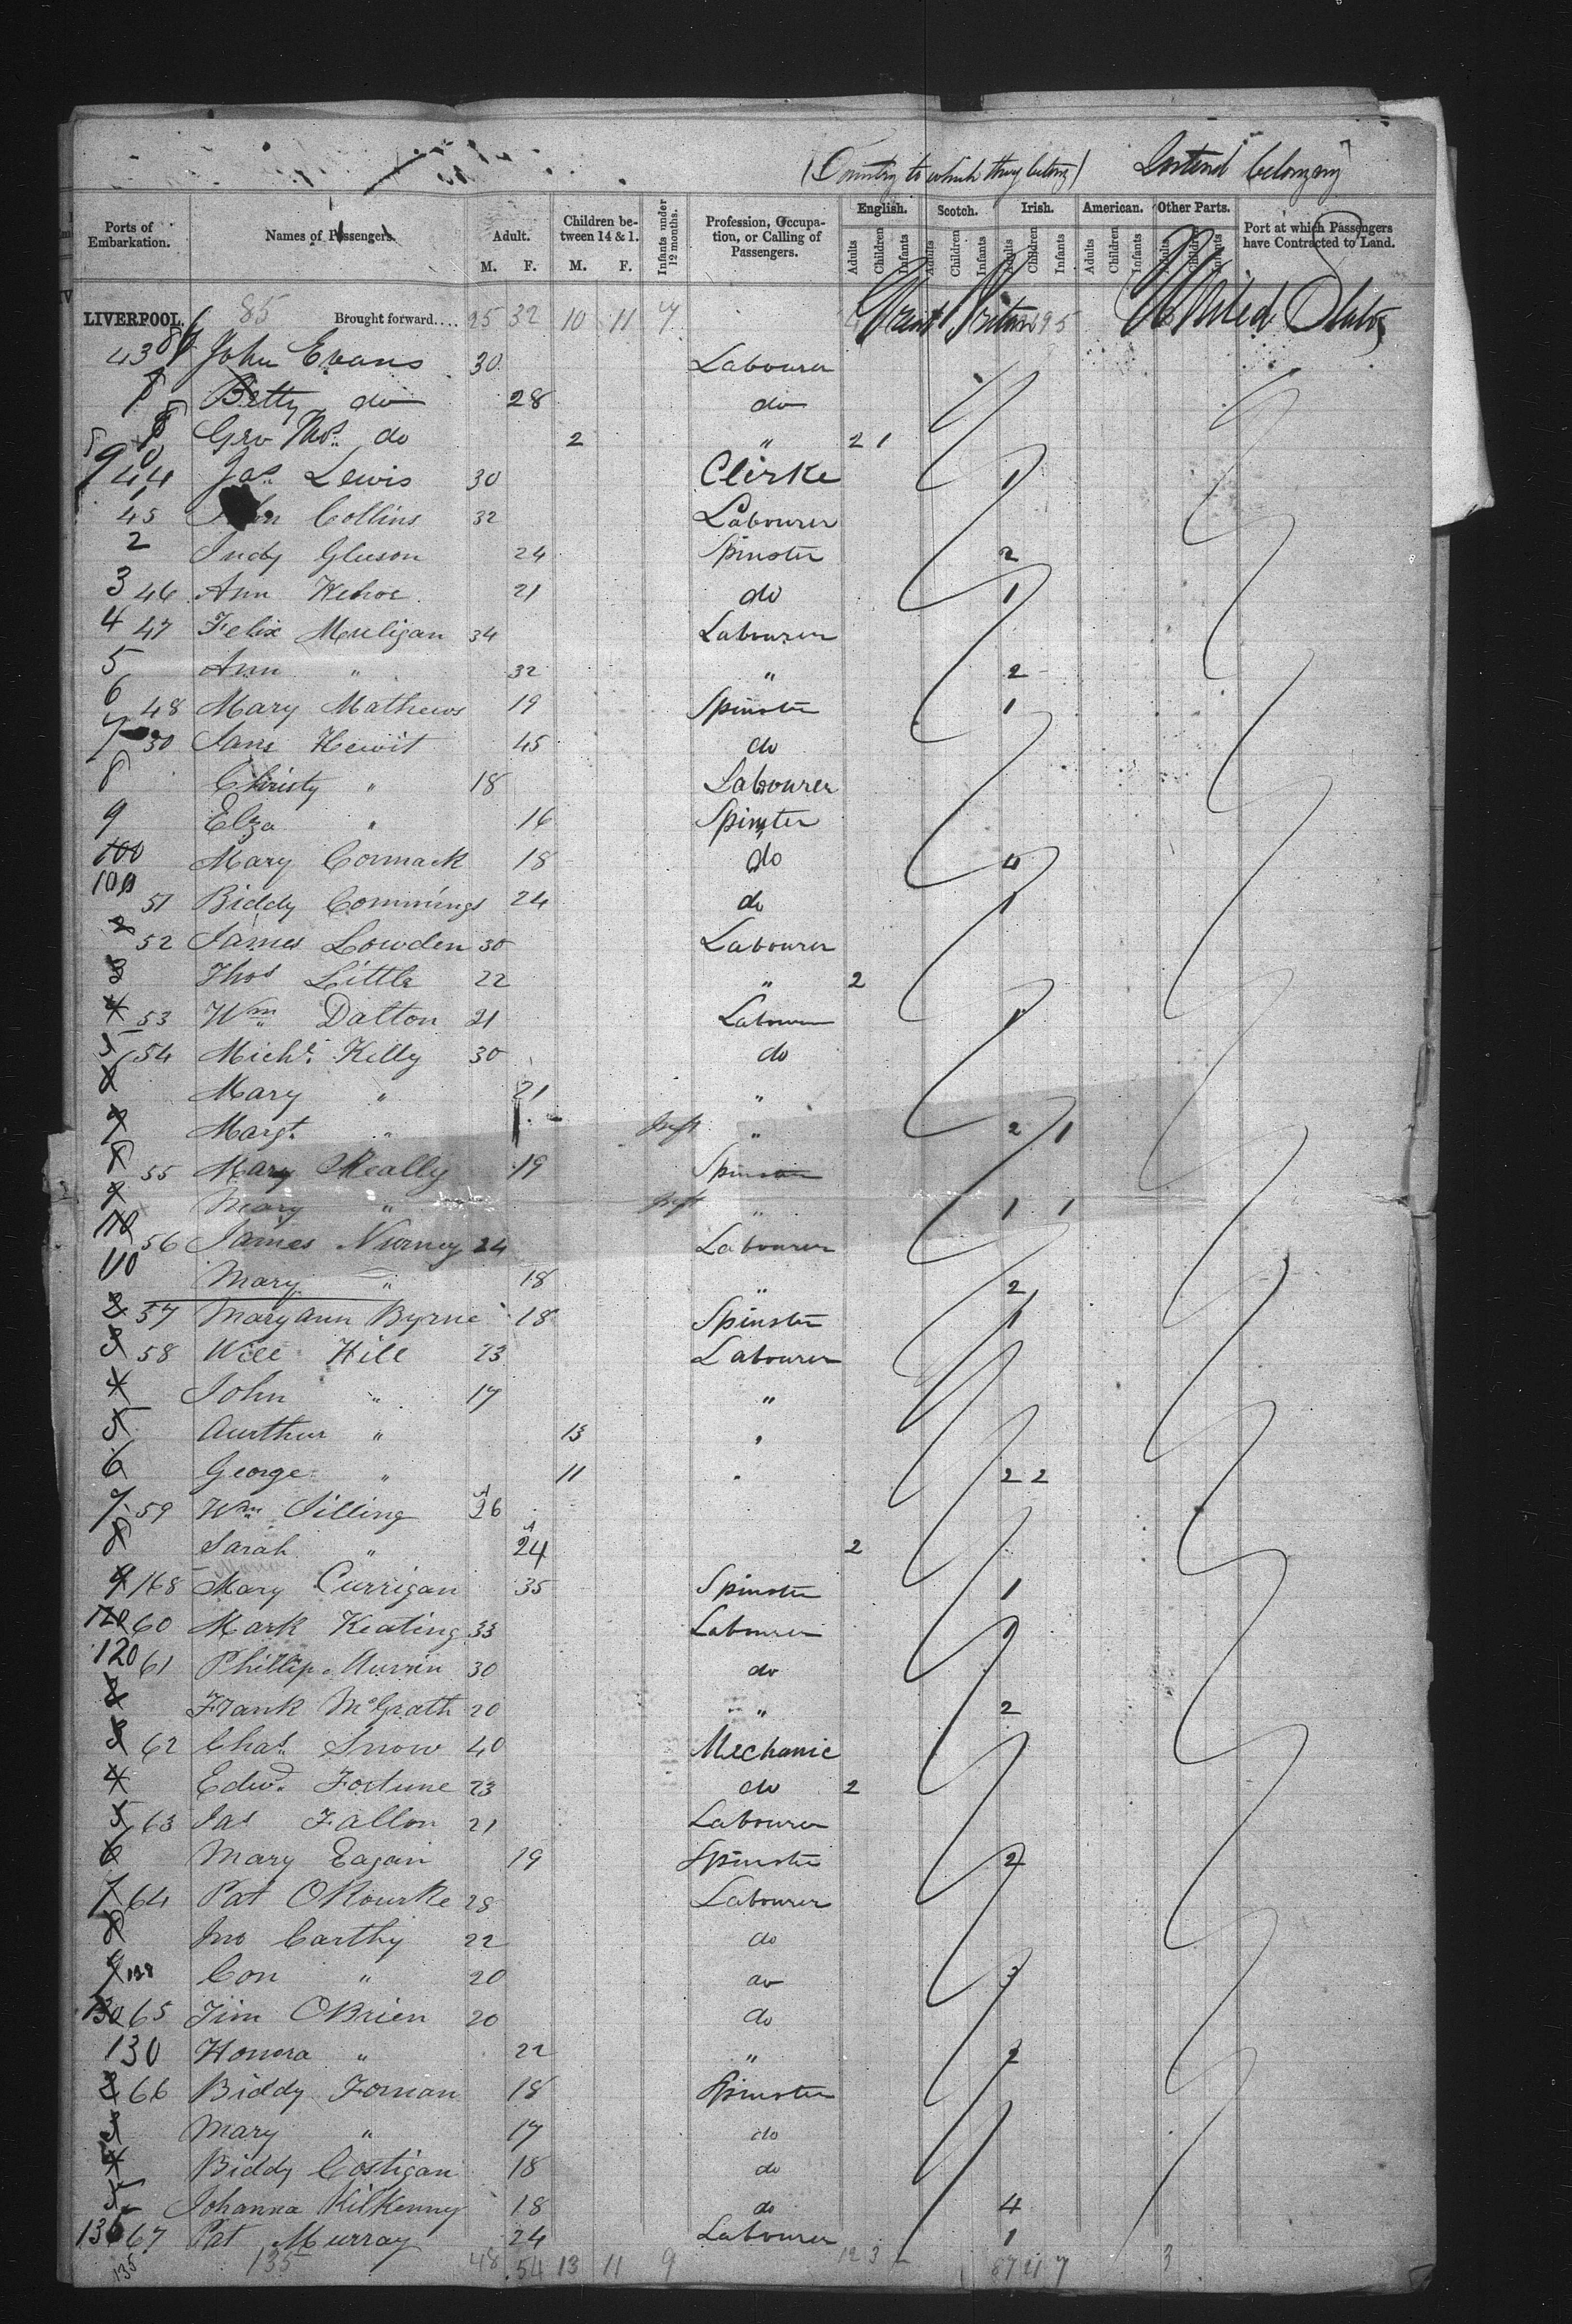 (Country to which they belong) Intend belonging
Ports of Embarkation. Names of Passengers. Adult. M. F. Children between 14 & 1. M. F. Infants under 12 months. Profession, Occupation, or Calling of Passengers. English. Adults Children Infants Scotch. Adults Children Infants Irish. Adults Children Infants American. Adults Children Infants Other Parts. Adults Children Infants Port at which Passengers have Contracted to Land.
LIVERPOOL. 85 Brought forward.... 25 32 10 11 7 Great Britain 95 United States
43 86 John Evans 30 Labourer
Betty do 28 do
8 Geo Thos. do 2 " 2 1
90 44 Jas. Lewis 30 Clerke 1
1 45 John Collins 32 Labourer
2 Judy Gleeson 24 Spinster 2
3 46 Ann Kehoe 21 do 1
4 47 Felix Muligan 34 Labourer
5 Ann " 32 " 2
6 48 Mary Mathews 19 Spinster 1
7 50 Jane Hewit 45 do
8 Christy " 18 Labourer
9 Elza " 16 Spinster
100 Mary Cormack 18 do 4
100 51 Biddy Commings 24 do 1
2 52 James Lowden 30 Labourer
3 Thos Little 22 " 2
4 53 Wm Dalton 21 Labourer 1
5 54 Michl. Kelly 30 do
6 Mary " 21 "
7 Margt. " Inft " 2 1
8 55 Mary Skeally 19 Spinster
9 Mary " Inft " 1 1
110 56 James Nurney 24 Labourer
110 Mary " 18 " 2
2 57 Mary Ann Byrne 18 Spinster 1
3 58 Will Hill 23 Labourer
4 John " 17 "
5 Aurthur " 13 "
6 George " 11 " 2 2
7 59 Wm. Silling 26
8 Sarah " 24 2
9 168 Mary Currigan 35 Spinster 1
120 60 Mark Keating 33 Labourer 1
120 61 Phillip 30 do
2 Frank McGrath 20 " 2
3 62 Chas. Snow 40 Mechanic
4 Edwd. Fortune 23 do 2
5 63 Jas Fallon 21 Labourer
6 Mary Eagan 19 Spinster 2
7 64 Pat ORourke 28 Labourer
8 Jno Carthy 22 do
9 128 Con " 20 do 3
130 65 Jim OBrien 20 do
130 Honora " 22 " 2
2 66 Biddy Fornan 18 Spinster
3 Mary " 17 do
4 Biddy Costigan 18 do
5 Johanna Kilkenny 18 do 4
136 67 Pat Murray 24 Labourer 1
135 135 48 54 13 11 9 12 3 87 21 7 3